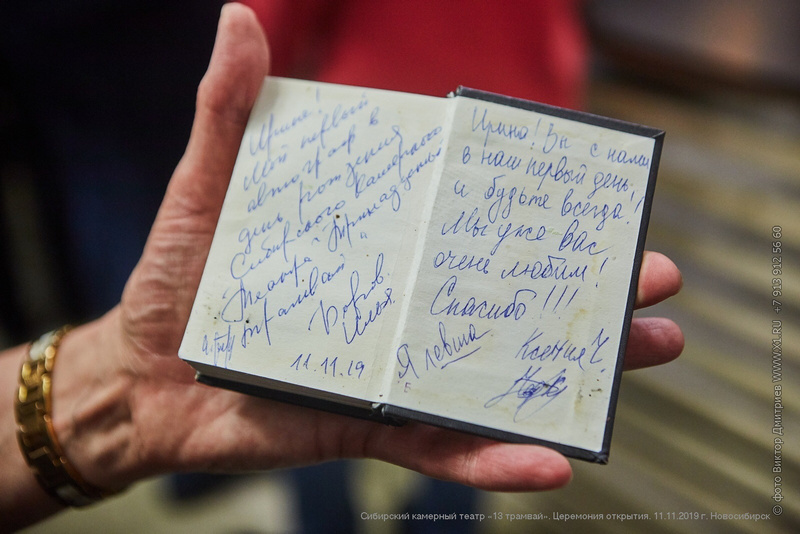 Ирина!
Мой первый
автограф в
день рождения
Сибирского Камерного
Театра "Тринадцатый
трамвай"
Боров
Илья
11.11.19
Ирина! Вы с нами
в наш первый день!
и будьте всегда!
Мы уже Вас
очень любим!
Спасибо!!!
"Я левша
Ксения Ч.
© фото Виктор Дмитриев WWW.X1.RU +7 913 912 56 60
Сибирский камерный театр «13 трамвай». Церемония открытия. 11.11.2019 г. Новосибирск